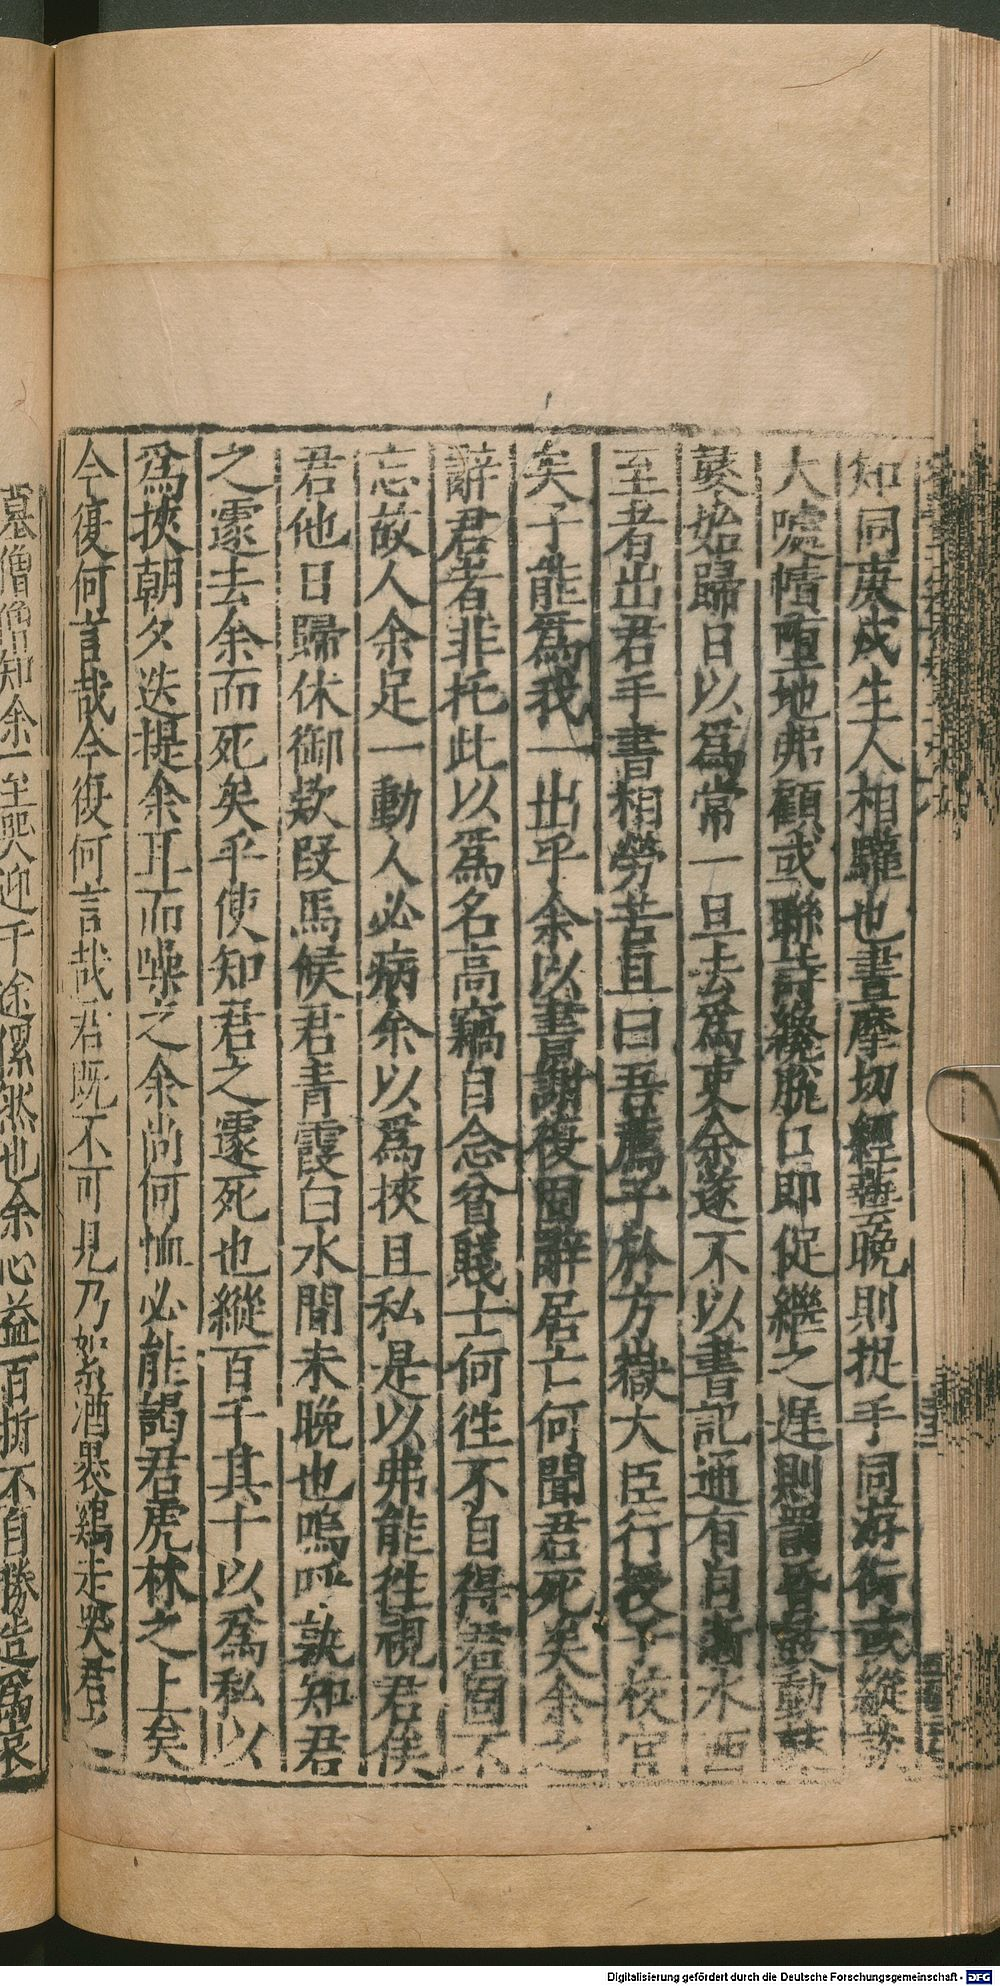 知同庚戌生人相驩也晝摩切經藝晚則捉手同游衡或縱談
大噱幘墮地弗顧或聯詩纔脫口即促繼之遲則罰昏鼓動
始歸日以爲常一旦去爲吏余遂不以書記通有自浙水西
至者出君手書相勞苦且曰吾薦子於方嶽大臣行授子校官
矣子能爲我一出乎余以書謝復固辭居亡何聞君死矣余之
辭君者非托此以爲名高竊自念貧賤士何徃不自得君固不
忘故人余足一動人必病余以爲挾且私是以弗能徃視君俟
君他日歸休御欵段馬候君青霞白水間未晚也嗚呼孰知君
之遽去余而死矣乎使知君之遽死也縱百千其十以爲私以
爲挾朝夕迭提余耳而噪之余尚何恤必能謁君虎林之上矣
今復何言哉今復何言哉君既不可見乃絮酒裹鷄走哭君之
墓僧知余一至 迎千途儽然也余心益百折不自勝造爲哀
Digitalisierung gefördert durch die Deutsche Forschungsgemeinschaft - DFG